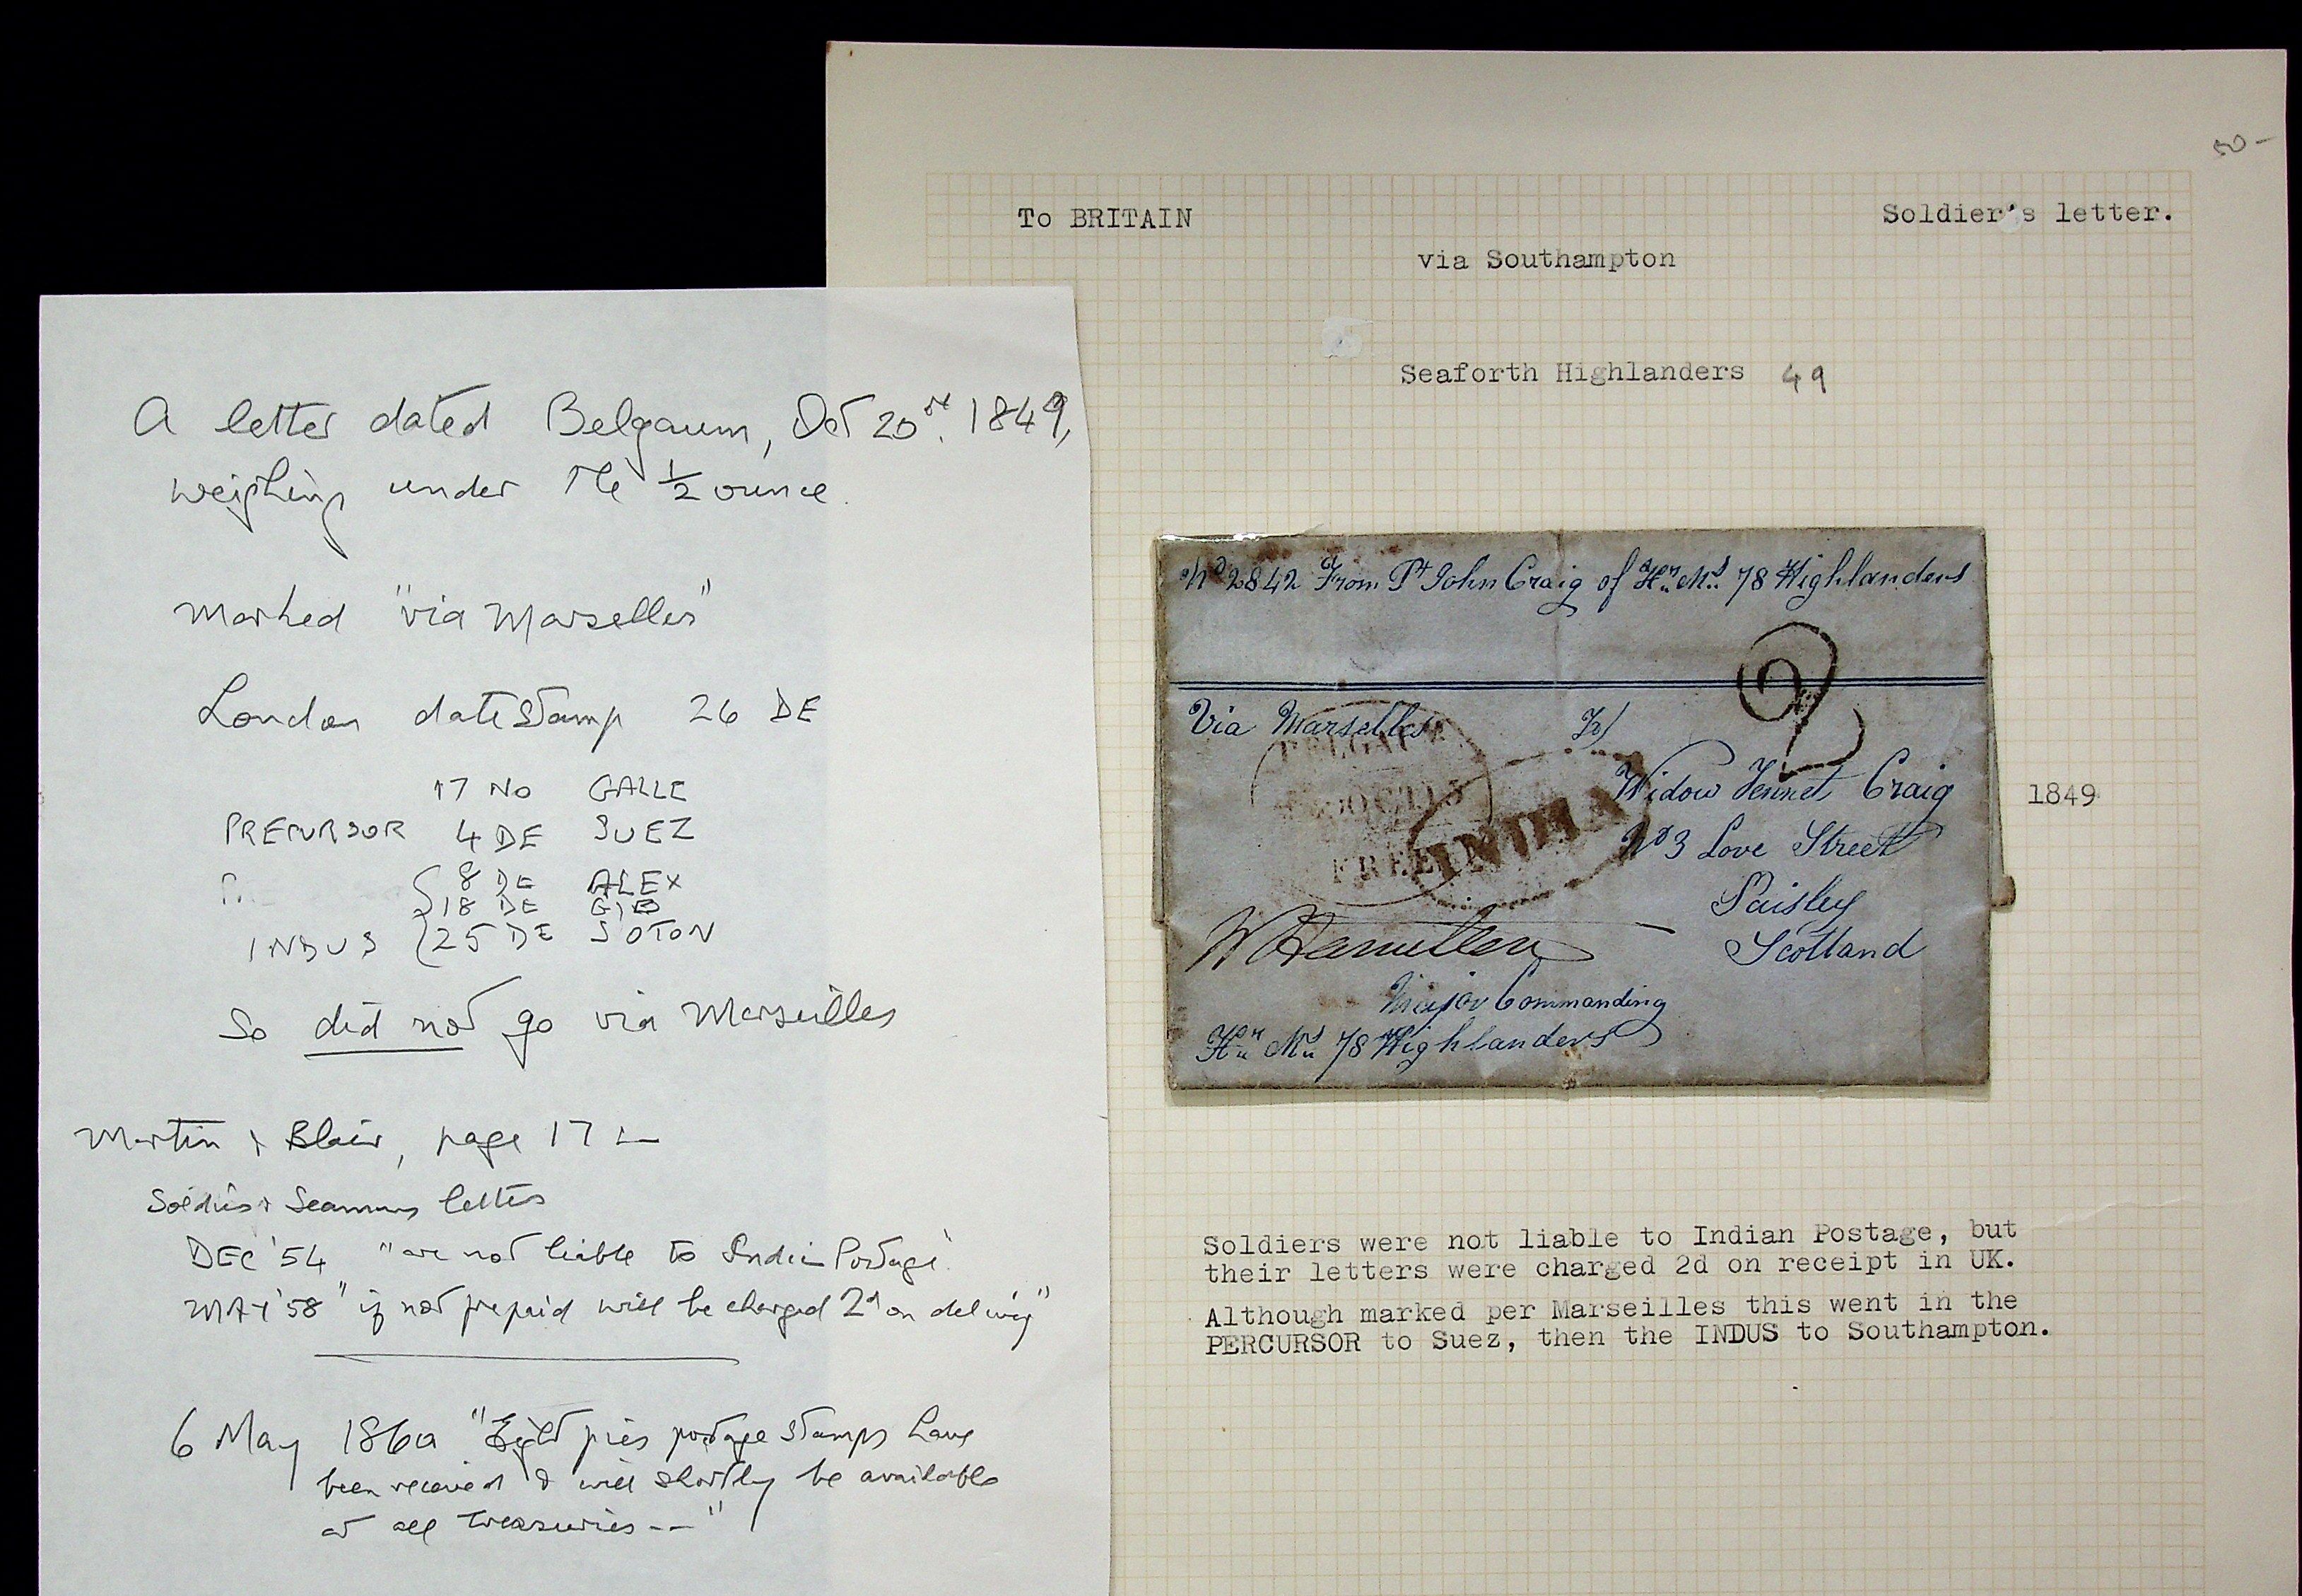 A letter dated Belgaum, Oct 20th. 1849,
weighing under the ½ ounce.
Marked "via Marselles"
London datestamp 26 DE
17 NO GALLE
PRECURSOR 4 DE SUEZ
8 DE ALEX
18 DE GIB
INDUS 25 DE SOTON
So did not go via Marseilles
Martin & Blair, page 17
Soldiers & Seamens letters
DEC '54 "are not liable to Indian Postage"
MAY '58 "if not prepaid will be charged 2d on delivery"
6 May 1860 "Eight pies postage stamps have
been received & will shortly be available
at all treasuries -- "
50 -
To BRITAIN
Soldier's letter.
via Southampton
Seaforth Highlanders 49
No 2842 From Pt John Craig of Her Ms 78 Highlanders
2
Via Marselles
To/
BELGAUM
OCT
FREE
INDIA
Widow Jennet Craig
No 3 Love Street
Paisley
Scotland
W Hamilton
Major Commanding
Her Ms 78 Highlanders
1849
Soldiers were not liable to Indian Postage, but
their letters were charged 2d on receipt in UK.
Although marked per Marseilles this went in the
PERCURSOR to Suez, then the INDUS to Southampton.